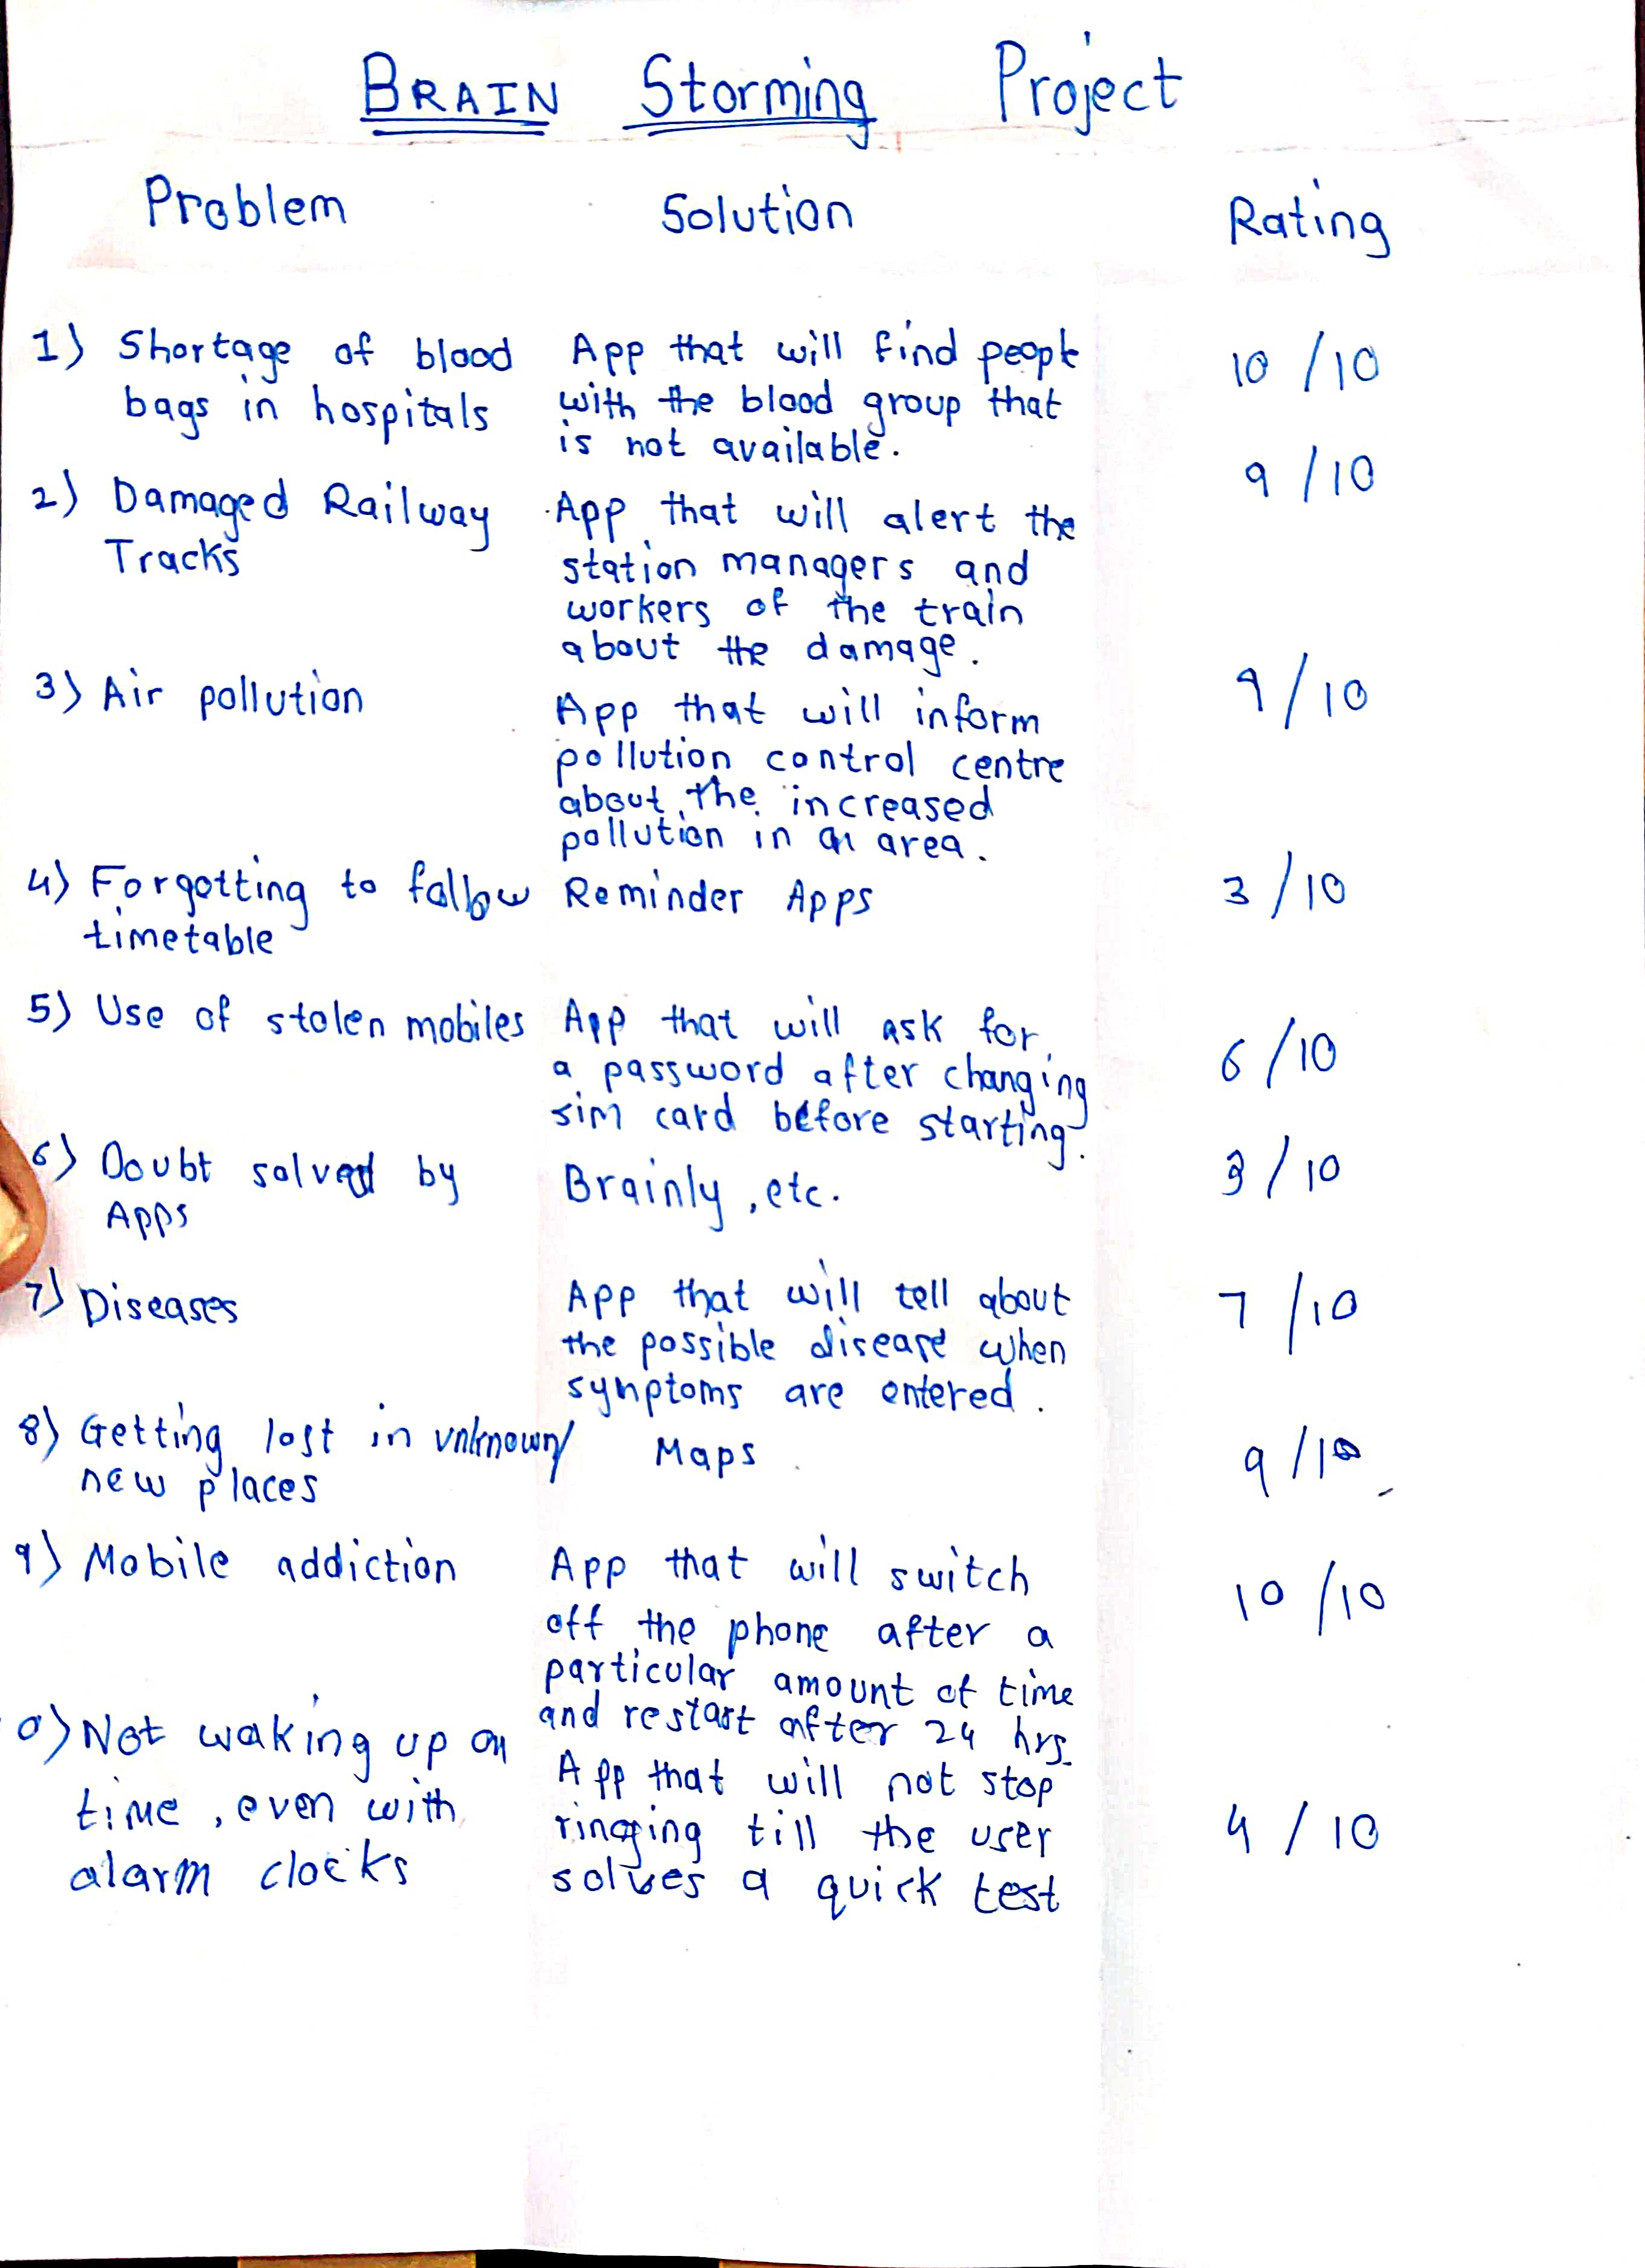 BRAIN Storming Project
Problem Solution Rating
1) Shortage of blood
bags in hospitals
App that will find people
with the blood group that
is not available.
10 /10
2) Damaged Railway
Tracks
App that will alert the
station managers and
workers of the train
about the damage.
9 /10
3) Air pollution
App that will inform
pollution control centre
about the increased
pollution in an area.
9/10
4) Forgotting to follow
timetable
Reminder Apps
3 /10
5) Use of stolen mobiles
App that will ask for
a password after changing
sim card before starting.
6 /10
6) Doubt solved by
Apps
Brainly, etc.
3 /10
7) Diseases
App that will tell about
the possible disease when
symptoms are entered.
7 /10
8) Getting lost in unknown/
new places
Maps
9 /10
9) Mobile addiction
App that will switch
off the phone after a
particular amount of time
and restart after 24 hrs.
10 /10
0) Not waking up on
time, even with
alarm clocks
App that will not stop
ringing till the user
solves a quick test
4 / 10